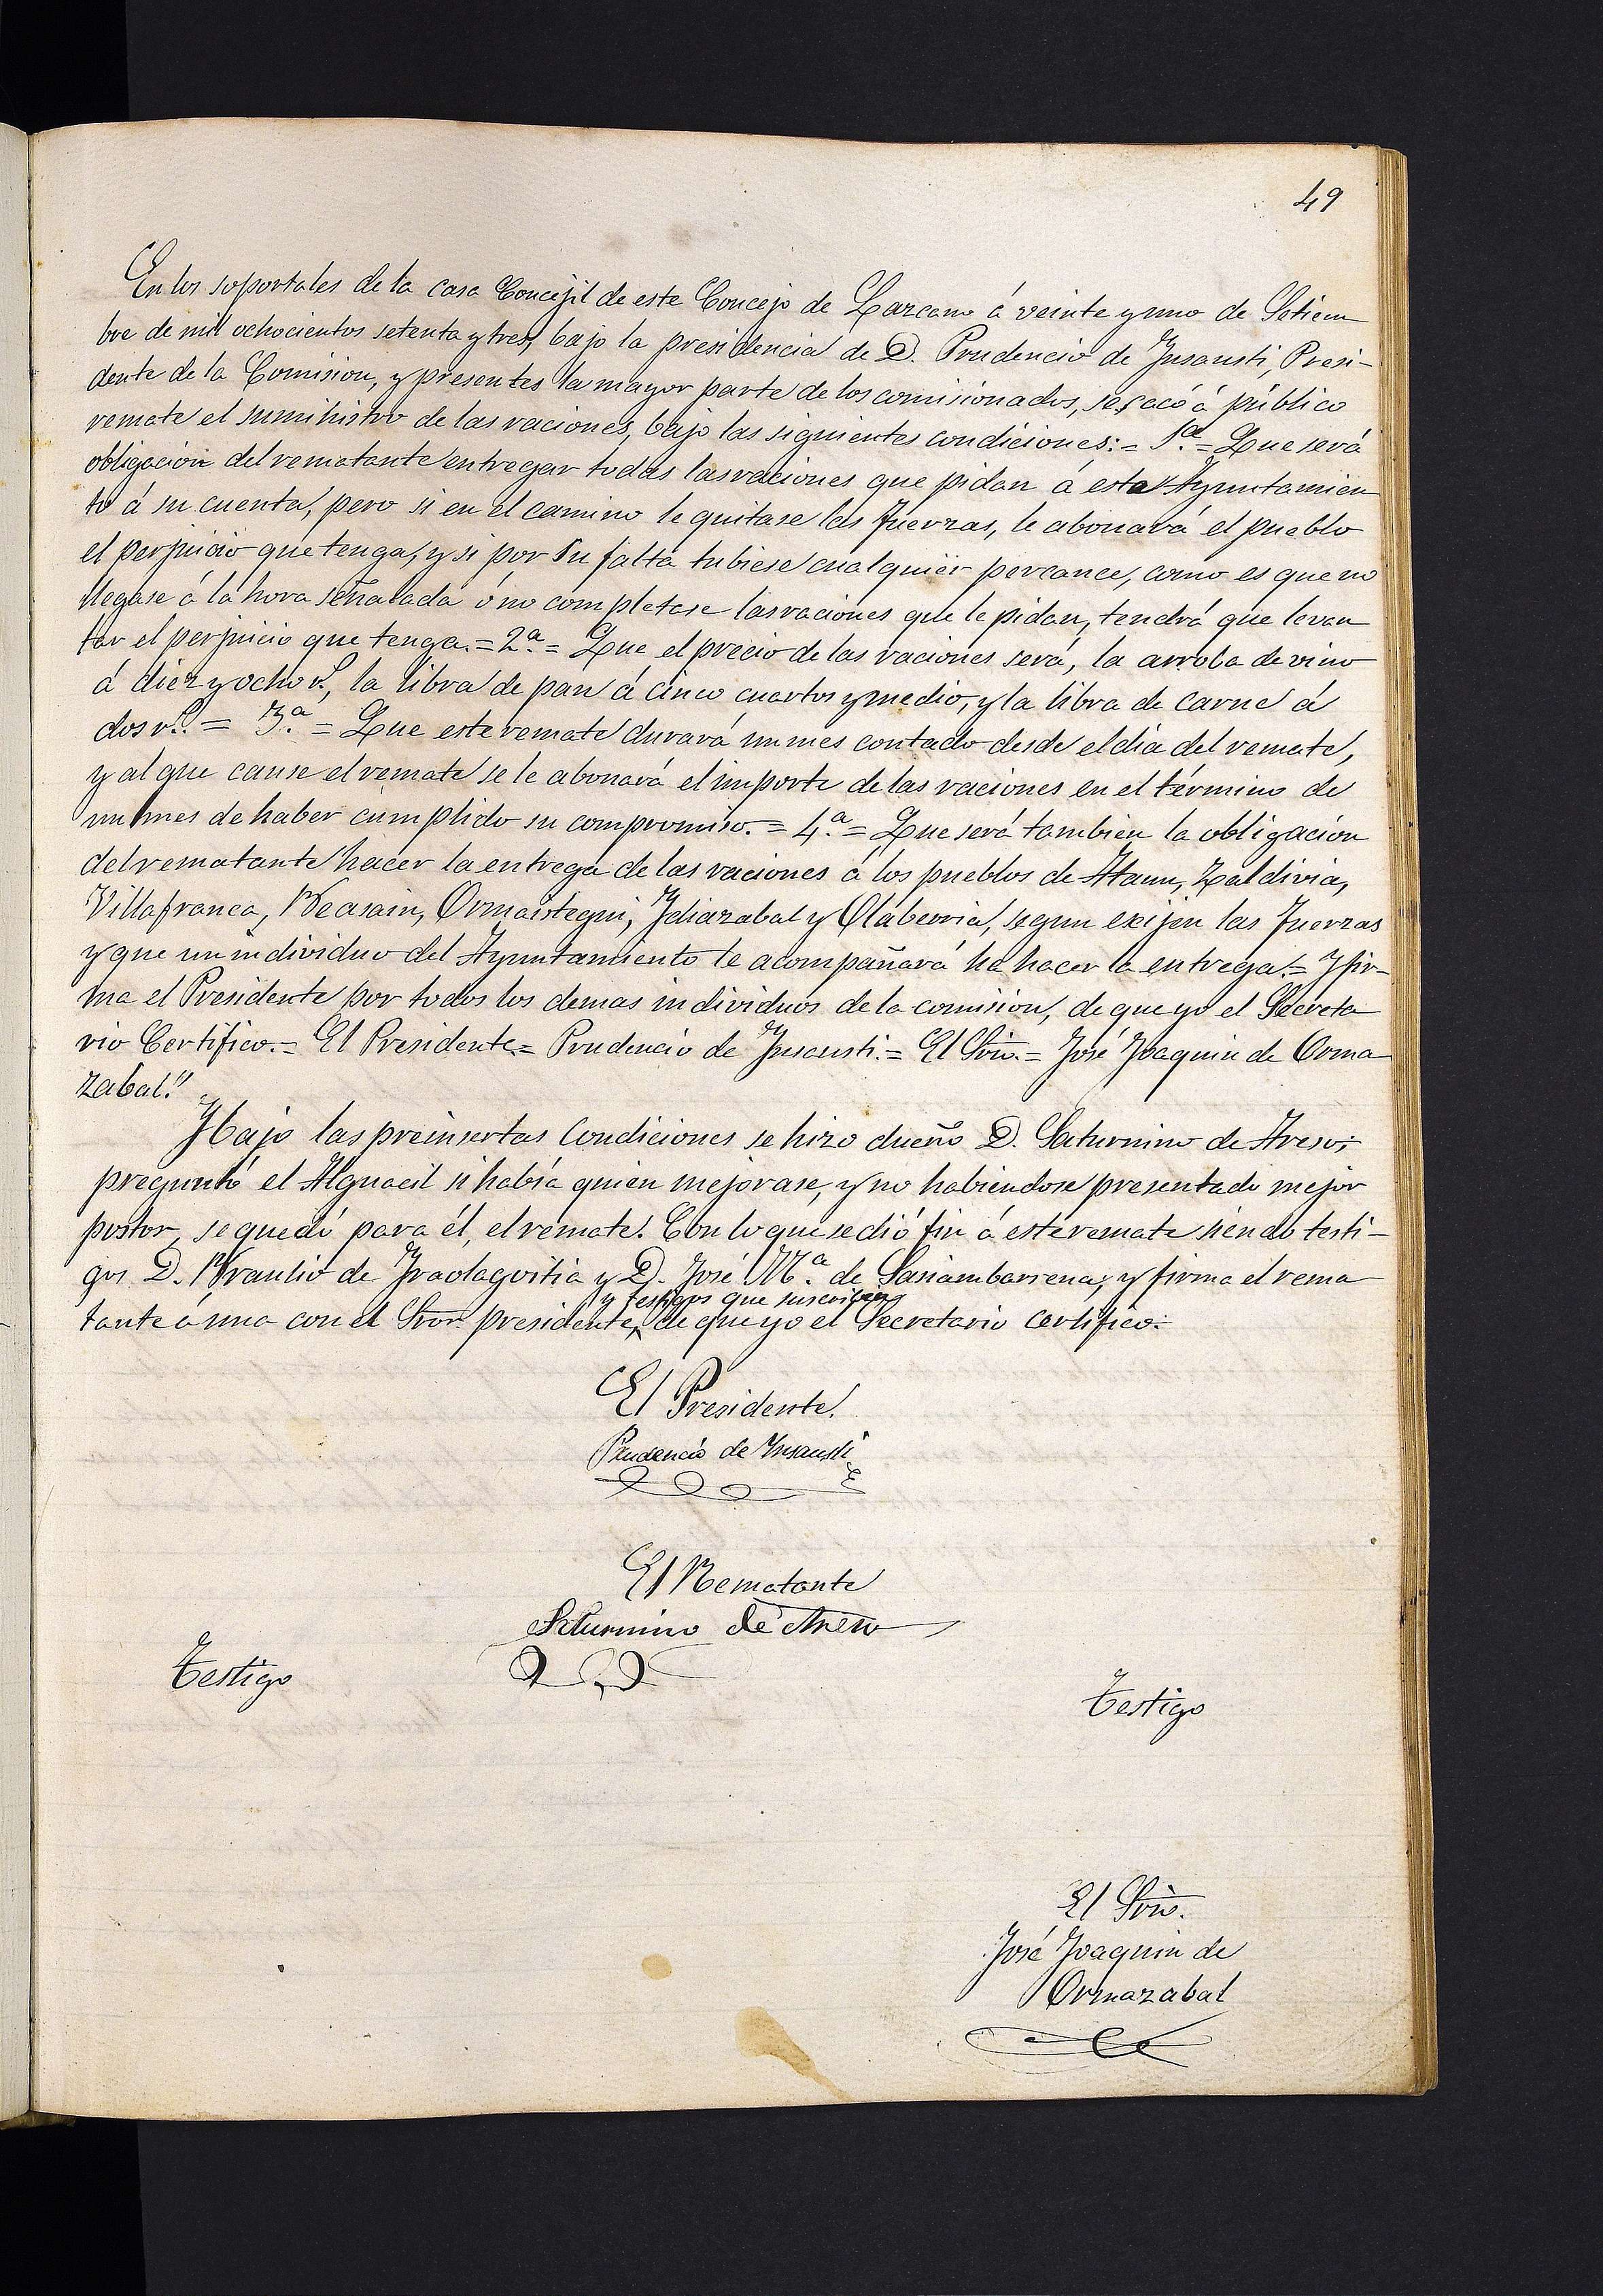 49
En los soportales de la casa Concejil de este Concejo de Lazcano á veinte y uno de Setiem
bre de mil ochocientos setenta y tres, bajo la presidencia de D. Prudencio de Insausti, Presi-
dente de la Comision, y presentes la mayor parte de los comisionados, se sacó á público
remate el suministro de las raciones, bajo las siguientes condiciones: = 1.ª = Que será
obligacion del rematante entregar todas las raciones que pidan á esta Ayuntamien
to á su cuenta, pero si en el camino le quitase las fuerzas, le abonará el pueblo
el perjuicio que tenga, y si por su falta tubiese cualquier percance, como es que no
llegase á la hora señalada ó no completase las raciones que le pidan, tendrá que levan
tar el perjuicio que tenga. = 2.ª = Que el precio de las raciones será, la arroba de vino
á diez y ocho r.s, la libra de pan á cinco cuartos y medio, y la libra de carne á
dos r.s = 3.ª = Que este remate durará un mes contado desde el dia del remate,
y al que cause el remate se le abonará el importe de las raciones en el término de
un mes de haber cumplido su compromiso. = 4.ª = Que será tambien la obligacion
del rematante hacer la entrega de las raciones á los pueblos de Ataun, Zaldivia,
Villafranca, Beasain, Ormaiztegui, Idiazabal y Olaberria, segun exijen las fuerzas
y que un individuo del Ayuntamiento le acompañará ha hacer la entrega. = Y fir-
ma el Presidente por todos los demas individuos de la comision, de que yo el Secreta
rio Certifico. = El Presidente. = Prudencio de Insausti. = El Srio. = José Joaquin de Orma
zabal."
Y bajo las preinsertas condiciones se hizo dueño D. Saturnino de Areso;
preguntó el Alguacil si había quien mejorase, y no habiendose presentado mejor
postor, se quedó para él, el remate. Con lo que se dió fin á este remate siendo testi-
gos D. Braulio de Iraolagoitia y D. José M.ª de Sasiambarrena; y firma el rema
y testigos que suscriben
tante á una con el Sror. presidente, de que yo el Secretario certifico:
El Presidente.
Prudencio de Insausti
El Rematante
Saturnino de Areso
Testigo
Testigo
El Srio.
José Joaquin de
Ormazabal